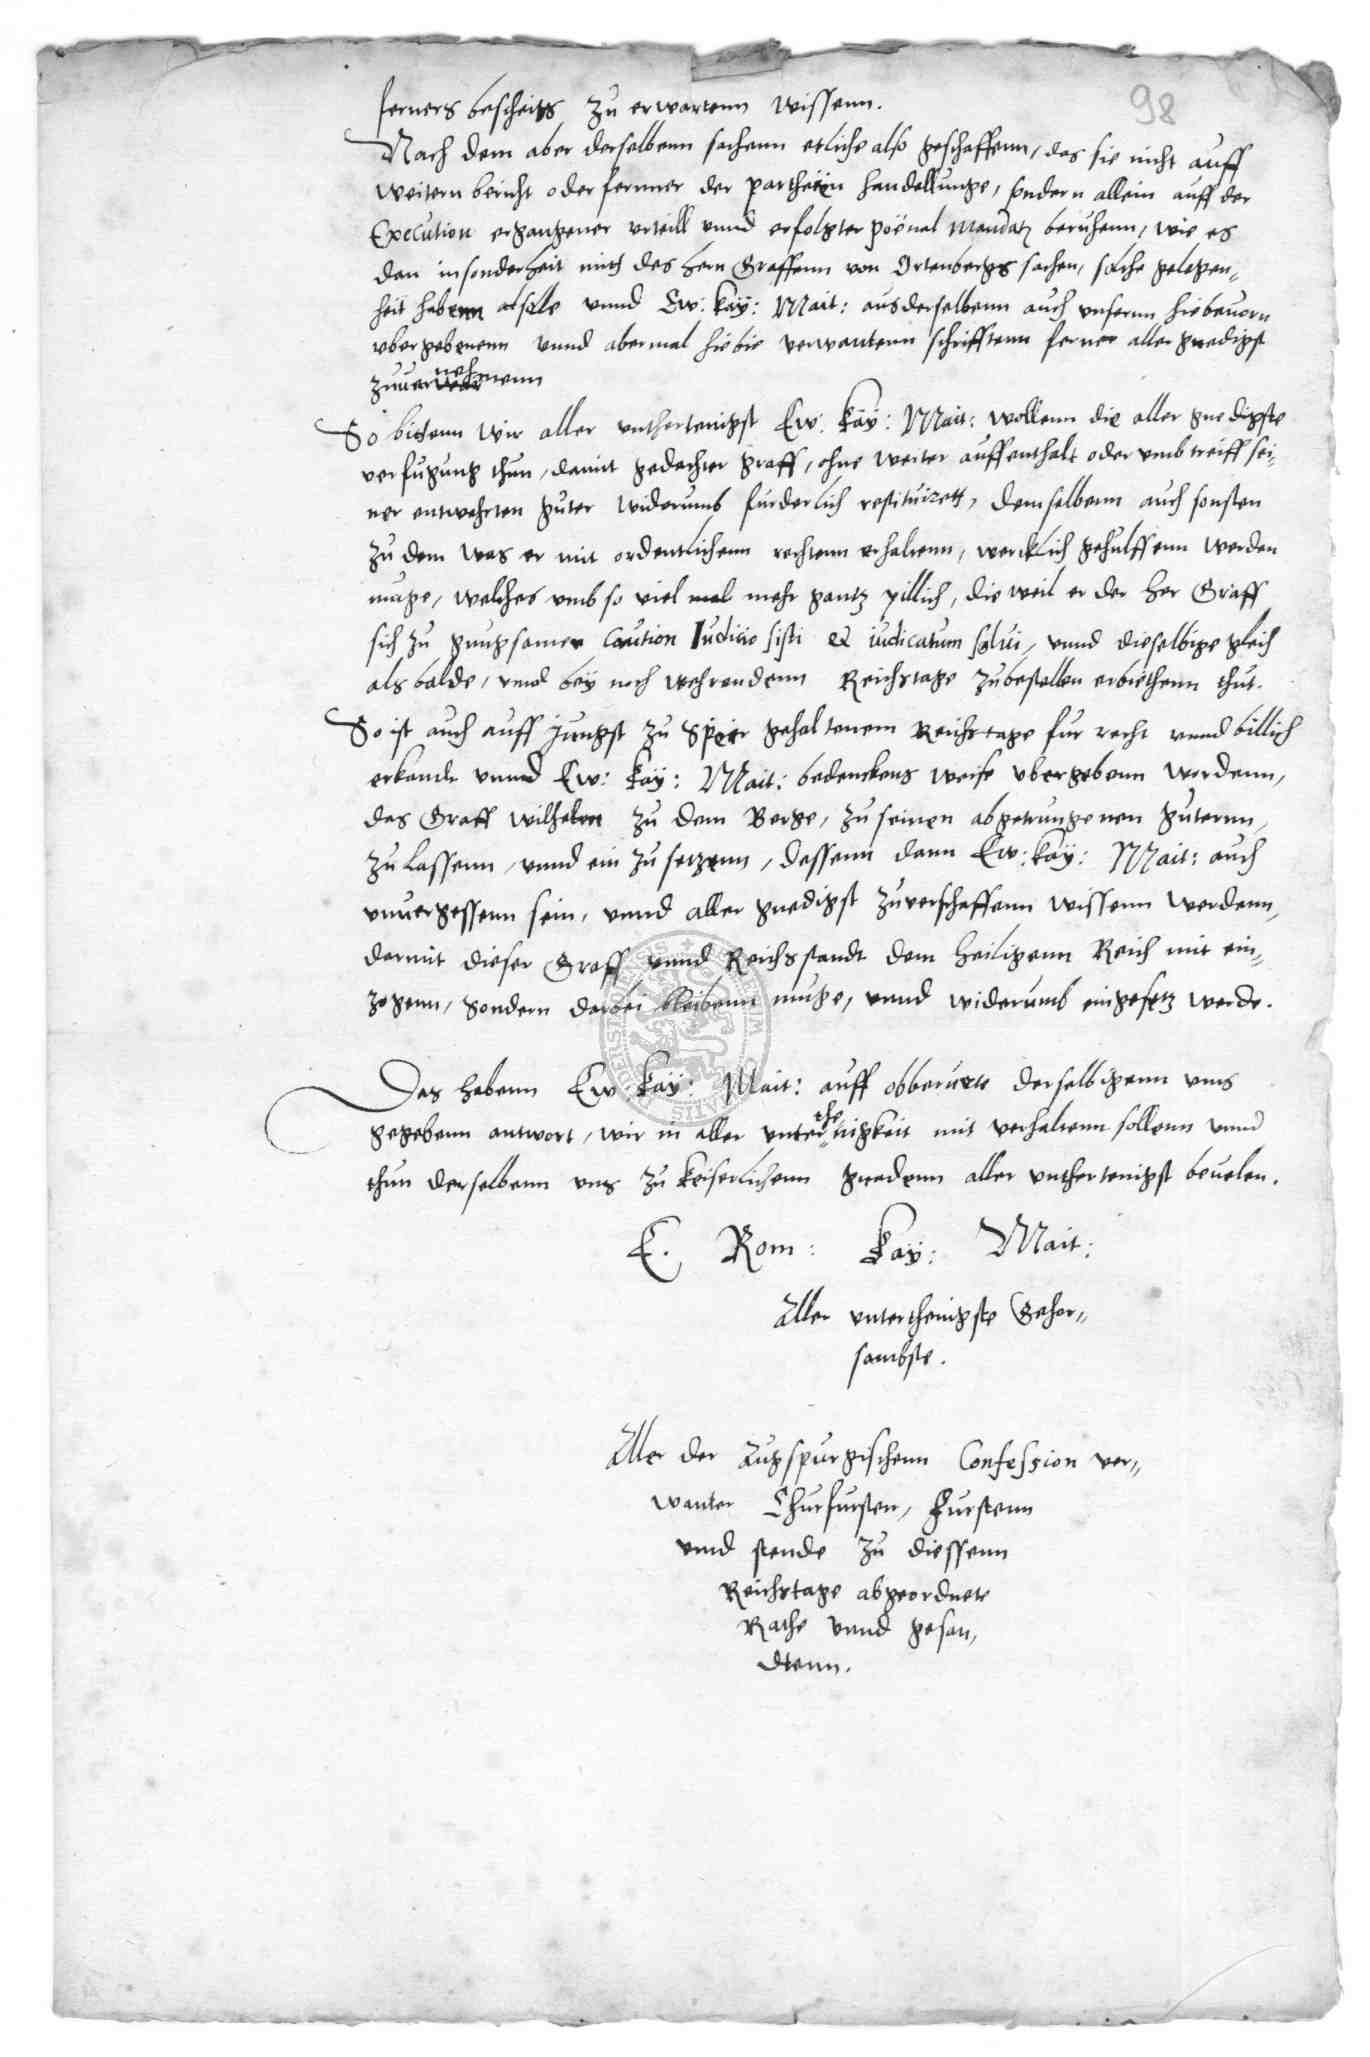 98
ferners bescheits zu erwartenn wissenn.
Nach dem aber derselbenn sachenn etliche also geschaffenn, das sie nicht auff
weitern bericht oder fernner der partheien handellunge, sondern allein auff der
Execution ergangener urteill unnd erfolgter poenal mandatz beruhenn, wie es
dan in sonderheit mitt des hern Graffenn von Ortenbergs sachen, solche gelegen-
heit habenn unnd Ew: kay: Mait: aus derselbenn auch unsernn hiebevorn
ubergebenenn unnd abermal hiebie verwantenn schrifftenn ferner aller gnedigst
zuvernehmenn
So bittenn wir aller unthertenigst Ew: kay: Mait: wollenn die aller gnedigste
verfugung thun, damit gedachter graff, ohne weiter auffenthalt oder umbtreiff sei-
ner entwehrten guter widerumb furderlich restituirett, demselbenn auch sonsten
zu dem was er mit ordentlichenn rechtenn erhaltenn, wercklich gehulffenn werden
muge, welches umb so viel mehr gantz pillich, die weil er der her Graff
sich zu gnugsamer Caution Iudicio sisti et iudicatum solvi, unnd dieselbige gleich
als balde, unnd bey noch wehrendenn Reichstage zubestellen erbiethenn thut.
So ist auch auff jungst zu Speier gehaltenem Reichstage fur recht unnd billich
erkandt unnd Ew: kay: Mait: bedenckens weise ubergebenn wordenn,
das Graff Wilhelm zu dem Berge, zu seinen abgetrungenen guternn,
zu lassenn, unnd ein zu setzenn, dessenn dann Ew: kay: Mait: auch
unvergessenn sein, unnd aller gnedigst zuverschaffenn wissenn werdenn,
darmit dieser Graff unnd Reichsstandt dem heiligenn Reich nit ein-
zogenn, sondern darbei bleibenn muge, unnd widerumb eingesetz werde.
Das habenn Ew kay: Mait: auff obberurte derselbigenn uns
gegebenn antwort, wir in aller unterthenigkeit nit verhaltenn sollenn unnd
thun derselbenn uns zu keiserlichenn gnadenn aller unthertenigst bevelen.
E. Rom: kay: Mait:
Aller unterthenigste Gehor-
sambste.
Aller der Augspurgischenn Confession ver-
wanter Churfursten, Furstenn
unnd stende zu diessenn
Reichstage abgeordnete
Rathe unnd gesan,
dtenn.